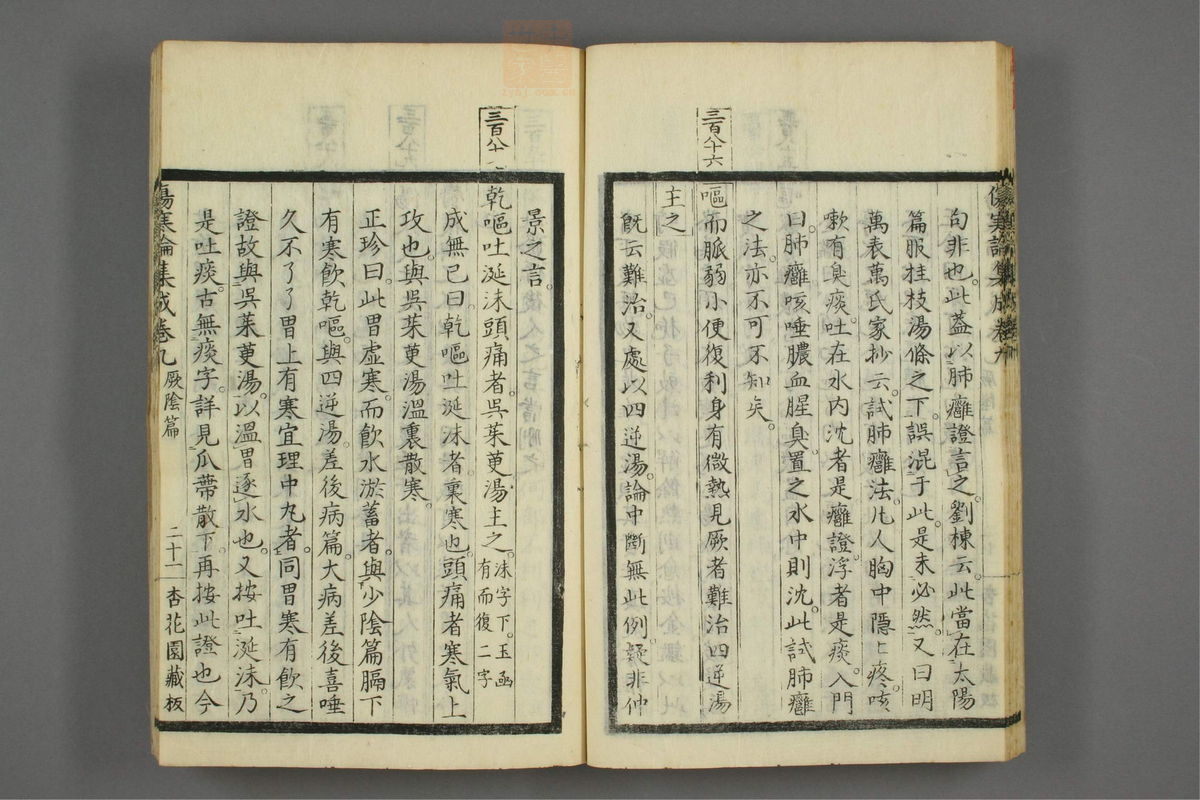 傷寒論集成卷九
句非也。此蓋以肺癰證言之。劉棟云。此當在太陽
篇服桂枝湯條之下。誤混于此。是未必然。又曰明
萬表萬氏家抄云。試肺癰法。凡人胸中隱々疼。咳
嗽有臭痰。吐在水内沈者是癰證。浮者是痰。入門
曰。肺癰咳唾膿血腥臭。置之水中則沈。此試肺癰
之法。亦不可不知矣。
三百八十六
嘔而脈弱小便復利身有微熱見厥者難治四逆湯
主之
既云難治。又處以四逆湯。論中斷無此例。疑非仲
景之言。
三百八十
乾嘔吐涎沫頭痛者。吳茱萸湯主之。沫字下。玉函有而復二字
成無已曰。乾嘔吐涎沫者。裏寒也。頭痛者寒氣上
攻也。與吳茱萸湯溫裏散寒。
正珍曰。此胃虛寒。而飲水淤蓄者。與少陰篇膈下
有寒飲乾嘔。與四逆湯。差後病篇。大病差後喜唾
久不了了胃上有寒宜理中丸者。同胃寒有飲之
證故與吳茱萸湯。以溫胃逐水也。又按吐涎沫。乃
是吐痰。古無痰字。詳見瓜蔕散下。再按此證也今
傷寒論集成卷九 厥陰篇 二十一 杏花園藏板